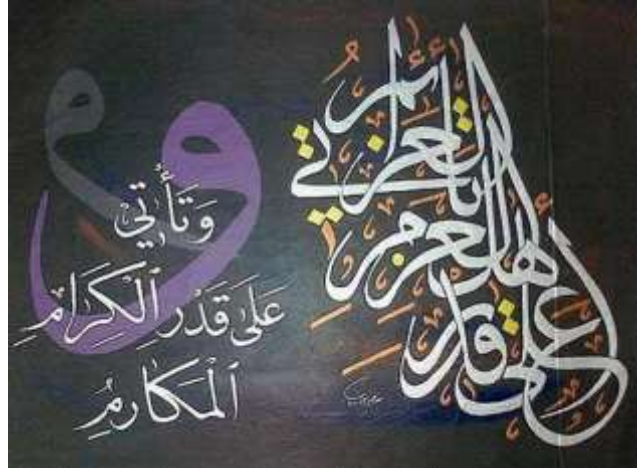 على قدر أهل العزم تأتي العزائم
وَتَأْتِي
عَلَى قَدْرِ الْكِرَامِ
الْمَكَارِمُ